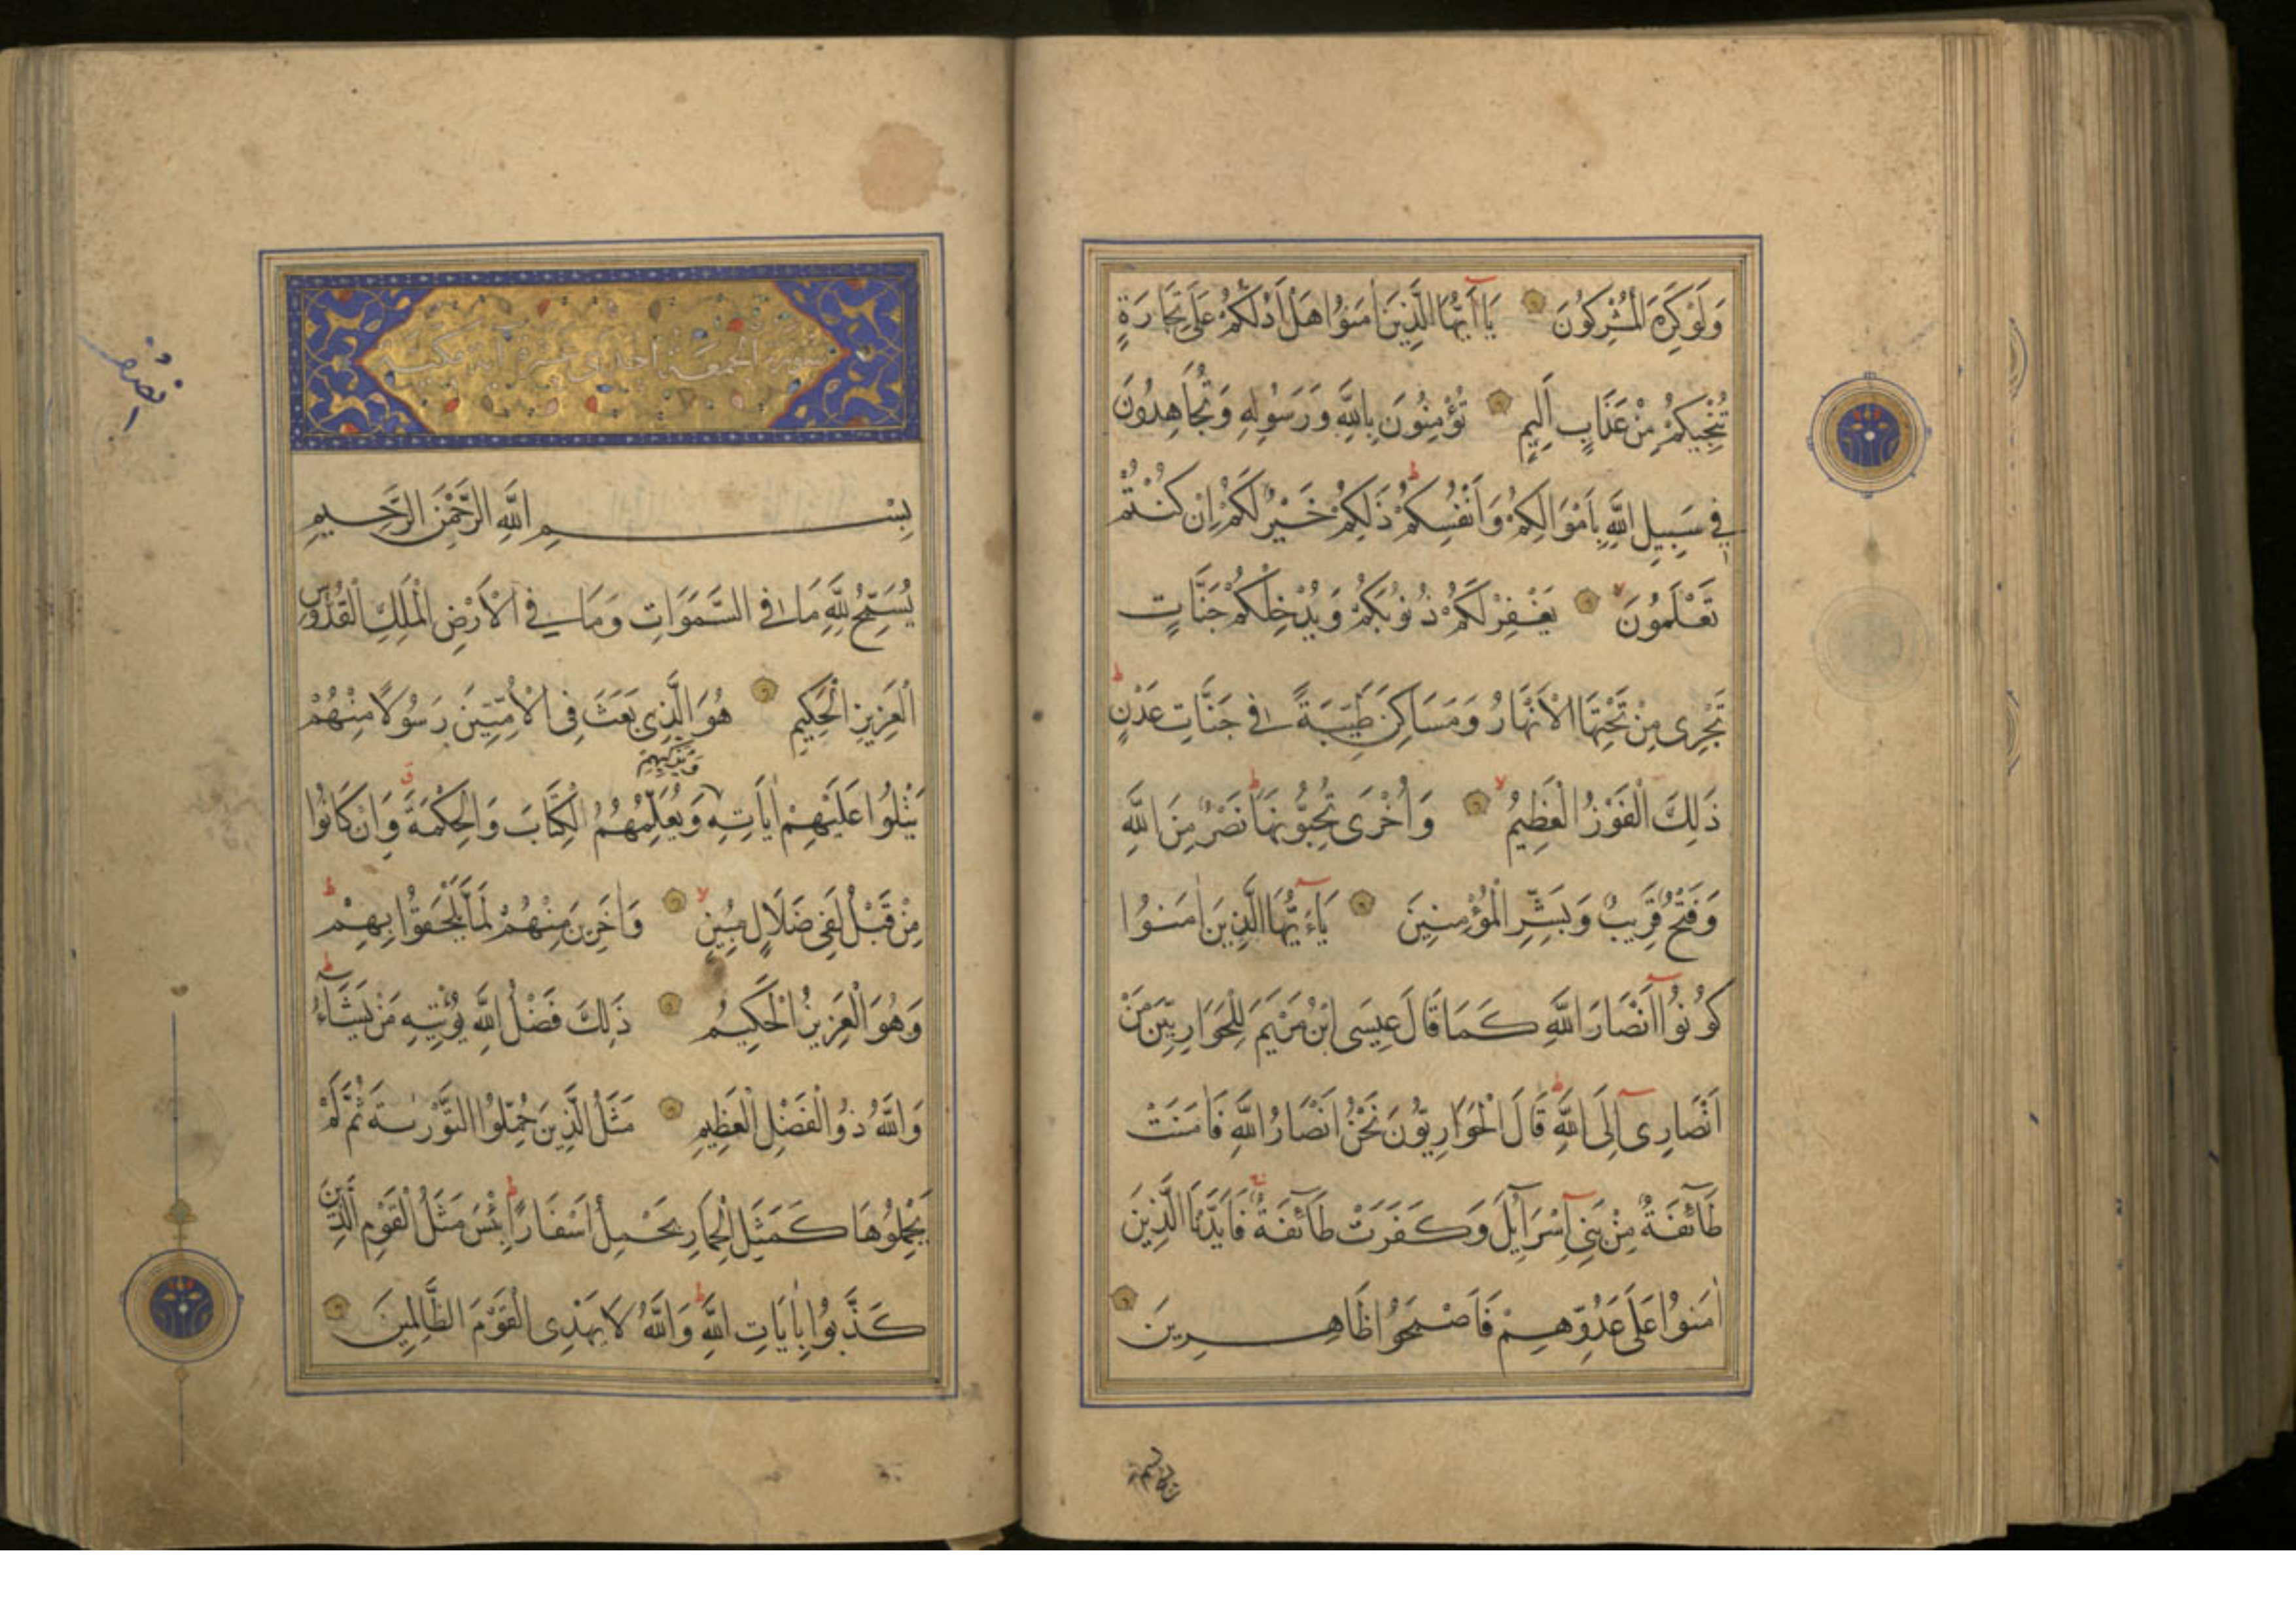 وَلَوْ كَرِهَ الْمُشْرِكُونَ يَا أَيُّهَا الَّذِينَ اٰمَنُوا هَلْ اَدُلُّكُمْ عَلَى تِجَارَةٍ
تُنْجِيكُمْ مِنْ عَذَابٍ اَلِيمٍ تُؤْمِنُونَ بِاللَّهِ وَرَسُولِهِ وَتُجَاهِدُونَ
فِي سَبِيلِ اللَّهِ بِاَمْوَالِكُمْ وَاَنْفُسِكُمْ ذَلِكُمْ خَيْرٌ لَكُمْ اِنْ كُنْتُمْ
تَعْلَمُونَ يَغْفِرْ لَكُمْ ذُنُوبَكُمْ وَيُدْخِلْكُمْ جَنَّاتٍ
تَجْرِى مِنْ تَحْتِهَا الْاَنْهَارُ وَمَسَاكِنَ طَيِّبَةً فِي جَنَّاتِ عَدْنٍ
ذَلِكَ الْفَوْزُ الْعَظِيمُ وَاُخْرَى تُحِبُّونَهَا نَصْرٌ مِنَ اللَّهِ
وَفَتْحٌ قَرِيبٌ وَبَشِّرِ الْمُؤْمِنِينَ يَاءَيُّهَا الَّذِينَ اٰمَنُوا
كُونُوا اَنْصَارَ اللَّهِ كَمَا قَالَ عِيسَى ابْنُ مَرْيَمَ لِلْحَوَارِيِّينَ مَنْ
اَنْصَارِى اِلَى اللَّهِ قَالَ الْحَوَارِيُّونَ نَحْنُ اَنْصَارُ اللَّهِ فَاٰمَنَتْ
طَآئِفَةٌ مِنْ بَنِي اِسْرَآئِلَ وَكَفَرَتْ طَآئِفَةٌ فَاَيَّدْنَا الَّذِينَ
اٰمَنُوا عَلَى عَدُوِّهِمْ فَاَصْبَحُوا ظَاهِرِينَ
سورة الجمعة احدى عشرة آية مكية
بِسْمِ اللَّهِ الرَّحْمَنِ الرَّحِيمِ
يُسَبِّحُ لِلَّهِ مَا فِي السَّمَوَاتِ وَمَا فِي الْاَرْضِ الْمَلِكِ الْقُدُّوسِ
الْعَزِيزِ الْحَكِيمِ هُوَ الَّذِى بَعَثَ فِى الْاُمِّيِّينَ رَسُولًا مِنْهُمْ
وَيُزَكِّيهِمْ
يَتْلُوا عَلَيْهِمْ اٰيَاتِهِ وَيُعَلِّمُهُمُ الْكِتَابَ وَالْحِكْمَةَ وَاِنْ كَانُوا
مِنْ قَبْلُ لَفِى ضَلَالٍ مُبِينٍ وَاٰخَرِينَ مِنْهُمْ لَمَّا يَلْحَقُوا بِهِمْ
وَهُوَ الْعَزِيزُ الْحَكِيمُ ذَلِكَ فَضْلُ اللَّهِ يُؤْتِيهِ مَنْ يَشَآءُ
وَاللَّهُ ذُو الْفَضْلِ الْعَظِيمِ مَثَلُ الَّذِينَ حُمِّلُوا التَّوْرٰيةَ ثُمَّ لَمْ
يَحْمِلُوهَا كَمَثَلِ الْحِمَارِ يَحْمِلُ اَسْفَارًا بِئْسَ مَثَلُ الْقَوْمِ الَّذِينَ
كَذَّبُوا بِاٰيَاتِ اللَّهِ وَاللَّهُ لَا يَهْدِى الْقَوْمَ الظَّالِمِينَ